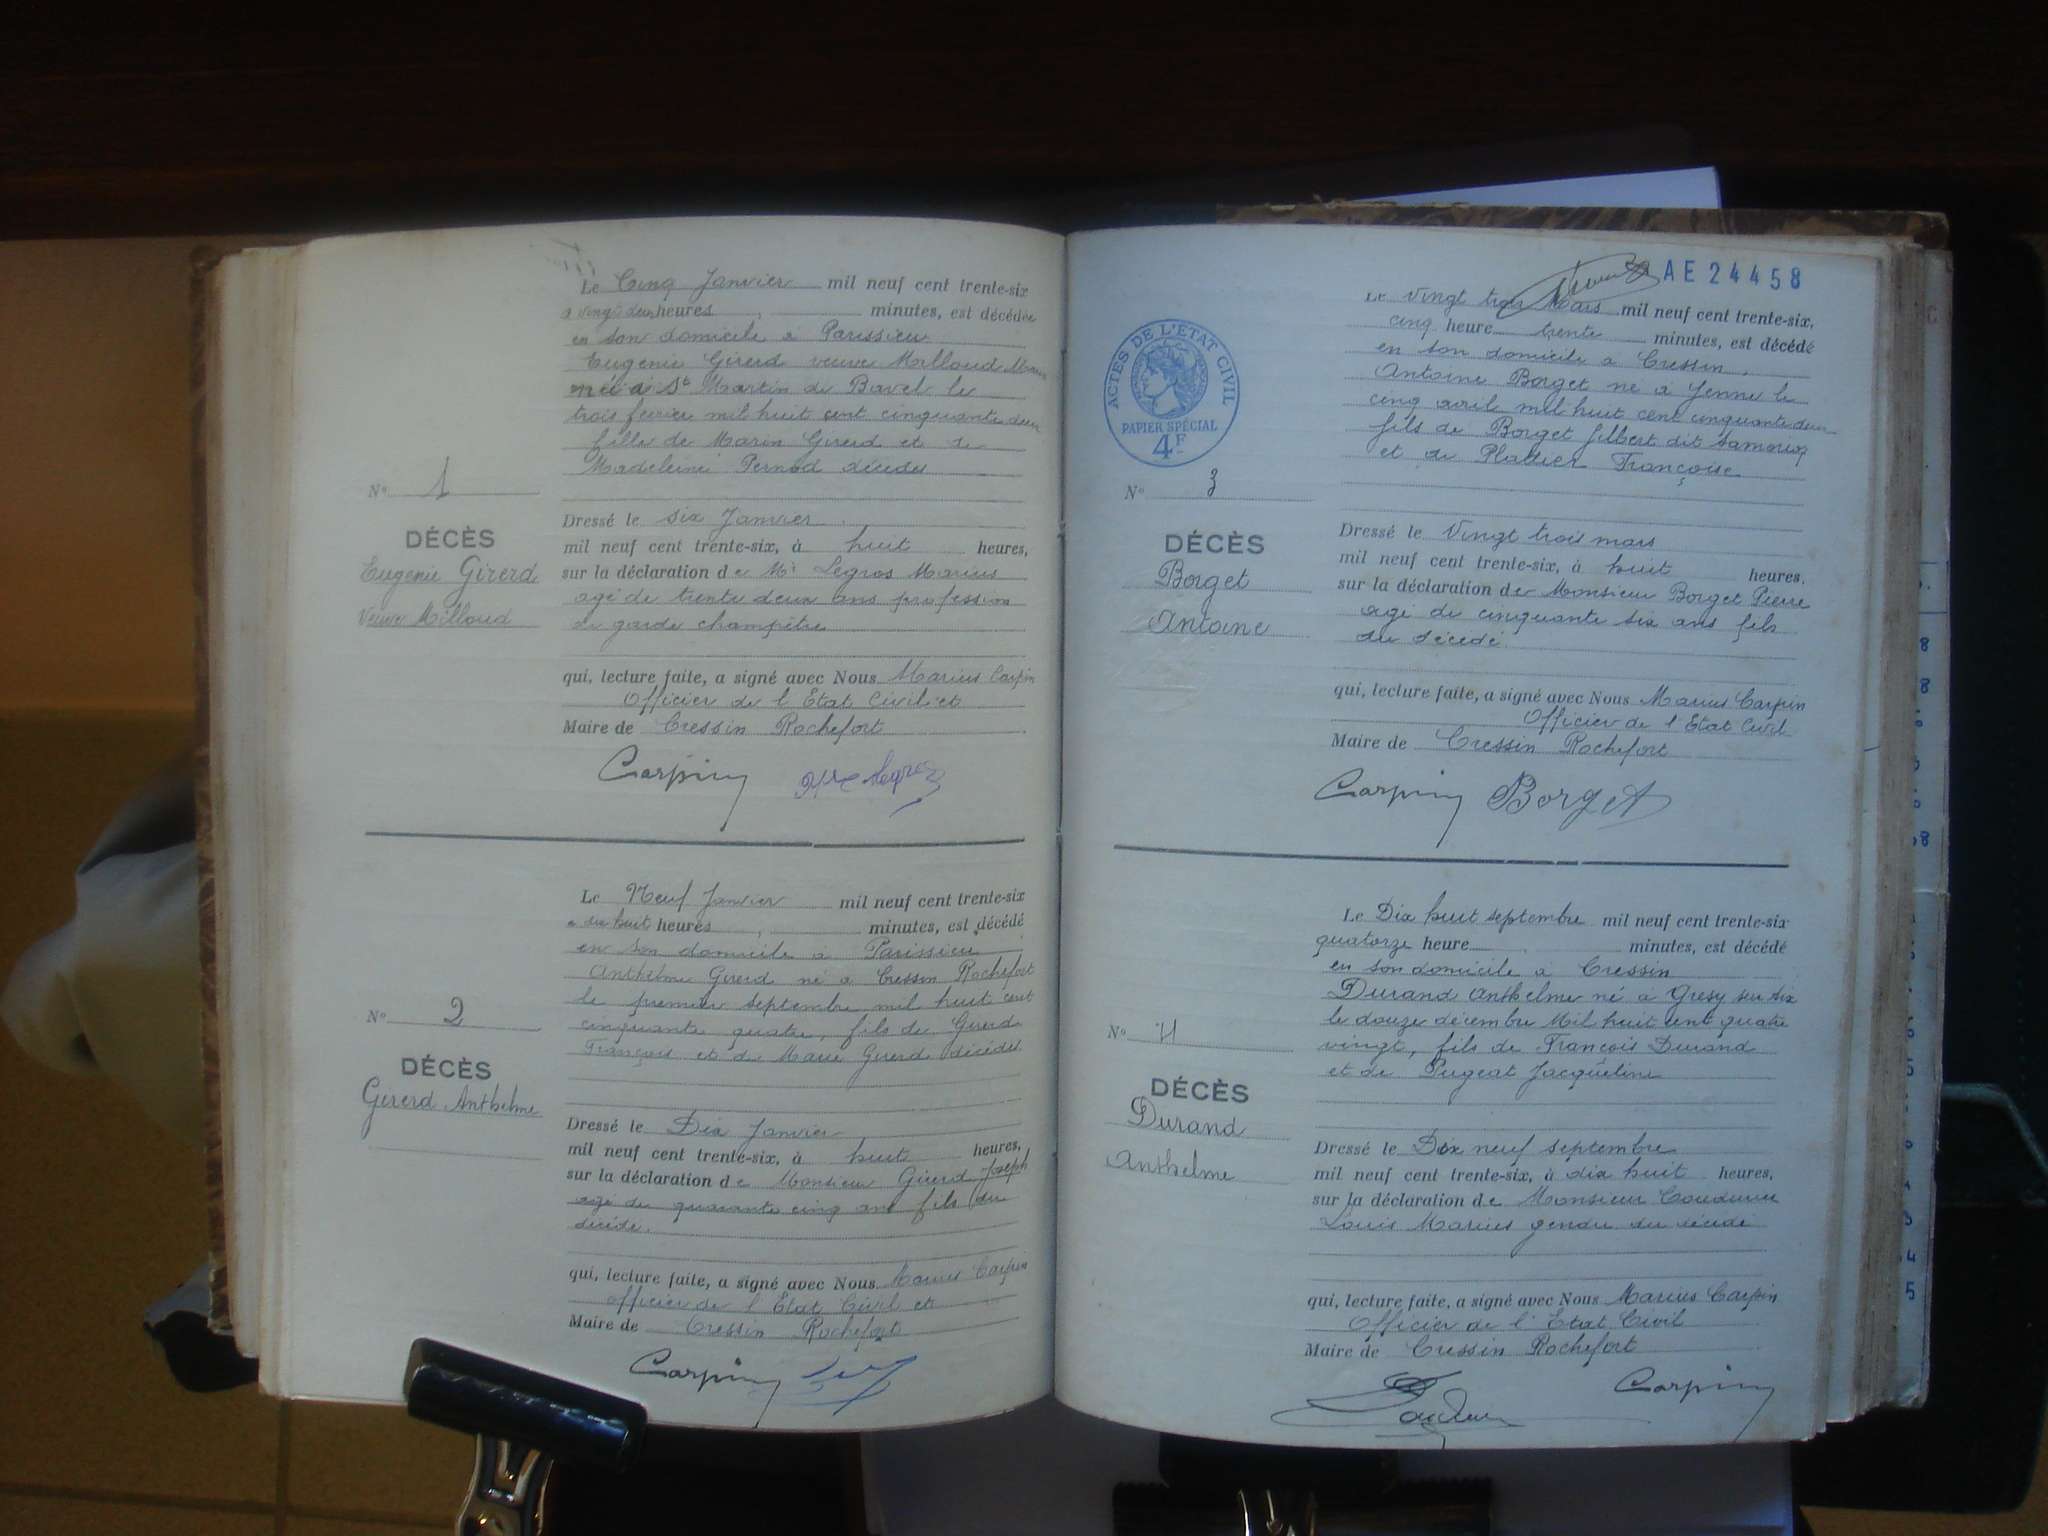 Le Cinq Janvier mil neuf cent trente-six
a vingt deux heures, minutes, est décédée
en son domicile à Parissieu
Eugenie Girerd veuve Milloud
née à St Martin de Bavel le
trois fevrier mil huit cent cinquante deux
fille de Marin Girerd et de
Madeleine Pernod décédés
N° 1
DÉCÈS
Eugenie Girerd
Veuve Milloud
Dressé le six Janvier
mil neuf cent trente-six, à huit heures,
sur la déclaration de Mr Legros Marius
agé de trente deux ans profession
de garde champêtre
qui, lecture faite, a signé avec Nous Marius Carpin
Officier de l'Etat Civil et
Maire de Cressin Rochefort
Carpin
Le Neuf Janvier mil neuf cent trente-six
a dix huit heures, minutes, est décédé
en son domicile à Parissieu
Anthelme Girerd né à Cressin Rochefort
le premier septembre mil huit cent
cinquante quatre, fils de Girerd
François et de Marie Girerd décédés
N° 2
DÉCÈS
Girerd Anthelme
Dressé le Dix Janvier
mil neuf cent trente-six, à huit heures,
sur la déclaration de Monsieur Girerd Joseph
agé de quarante cinq ans fils du
décédé.
qui, lecture faite, a signé avec Nous Marius Carpin
officier de l'Etat Civil et
Maire de Cressin Rochefort
Carpin
AE 24458
ACTES DE L'ÉTAT CIVIL
PAPIER SPÉCIAL
4F
Le Vingt trois Mars mil neuf cent trente-six,
cinq heure trente minutes, est décédé
en son domicile à Cressin,
Antoine Borget né à Yenne le
cinq avril mil huit cent cinquante deux
fils de Borget Gilbert dit Samorix
et de Plattier Françoise
N° 3
DÉCÈS
Borget
Antoine
Dressé le Vingt trois mars
mil neuf cent trente-six, à huit heures,
sur la déclaration de Monsieur Borget Pierre
agé de cinquante six ans fils
du décédé.
qui, lecture faite, a signé avec Nous Marius Carpin
Officier de l'Etat Civil
Maire de Cressin Rochefort
Carpin Borget
Le Dix huit septembre mil neuf cent trente-six
quatorze heure minutes, est décédé
en son domicile à Cressin
Durand Anthelme né à Gresy sur Aix
le douze décembre Mil huit cent quatre
vingt, fils de François Durand
et de Pugeat Jacqueline
N° 4
DÉCÈS
Durand
Anthelme
Dressé le Dix neuf septembre
mil neuf cent trente-six, à dix huit heures,
sur la déclaration de Monsieur Coudurier
Louis Marius gendre du décédé
qui, lecture faite, a signé avec Nous Marius Carpin
Officier de l'Etat Civil
Maire de Cressin Rochefort
Carpin